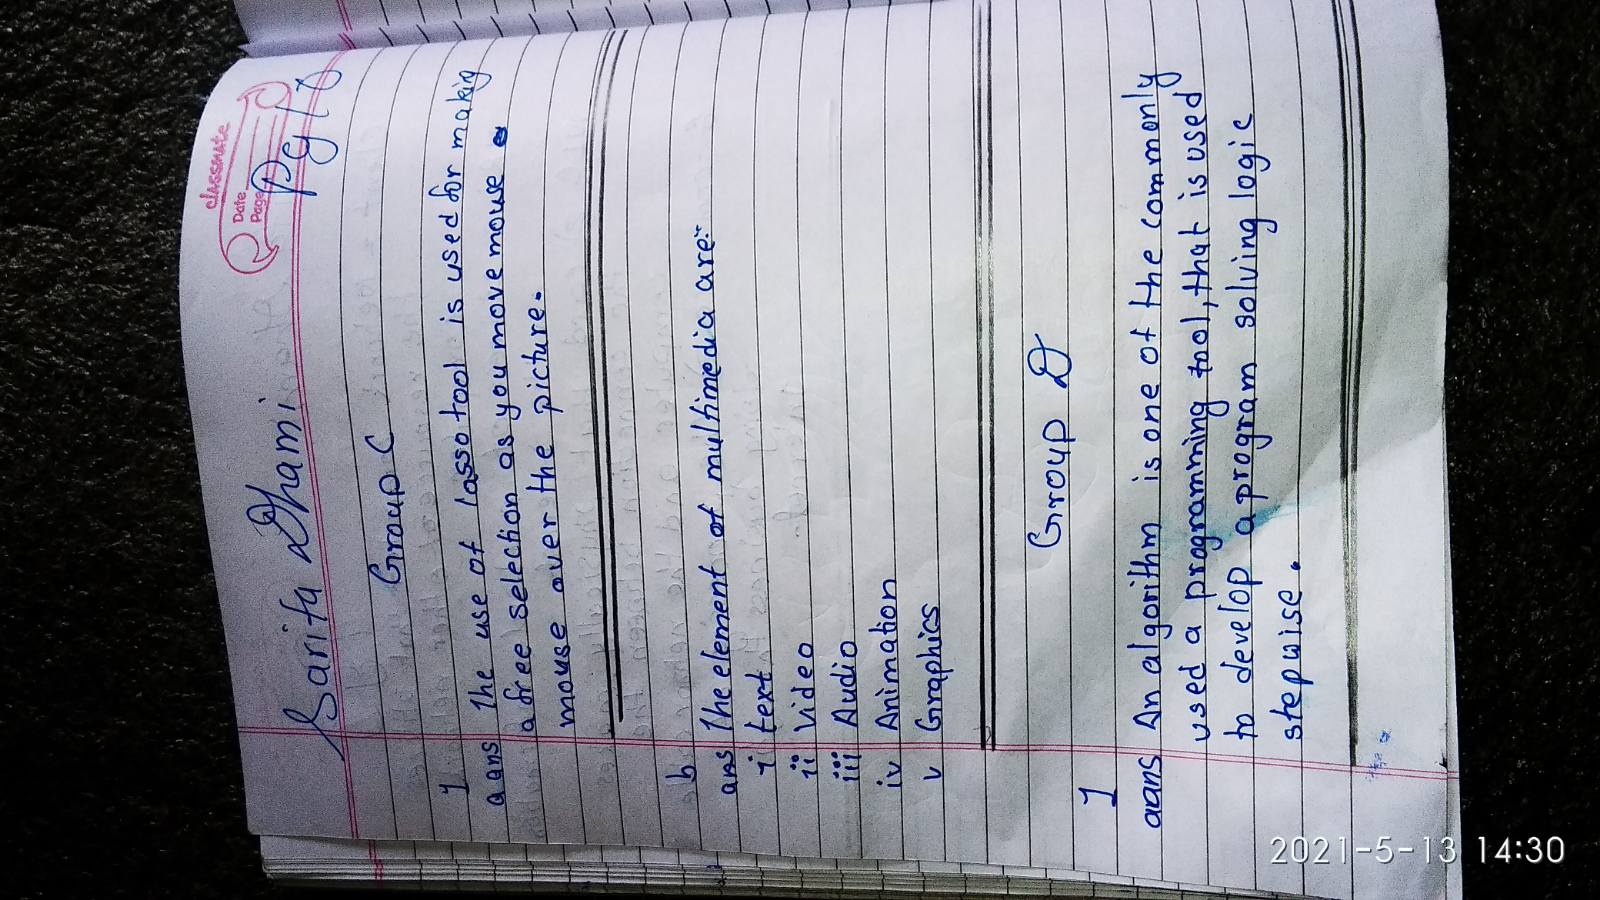 classmate
Date
Page
Pg10
Sarita Dhami
Group C
1
a ans The use of lasso tool is used for makig
a free selection as you move mouse
mouse over the picture.
b
ans The element of multimedia are:
i text
ii Video
iii Audio
iv Animation
v Graphics
Group D
1
a ans An algorithm is one of the commonly
used a programming tool, that is used
to develop a program solving logic
stepwise.
2021-5-13 14:30